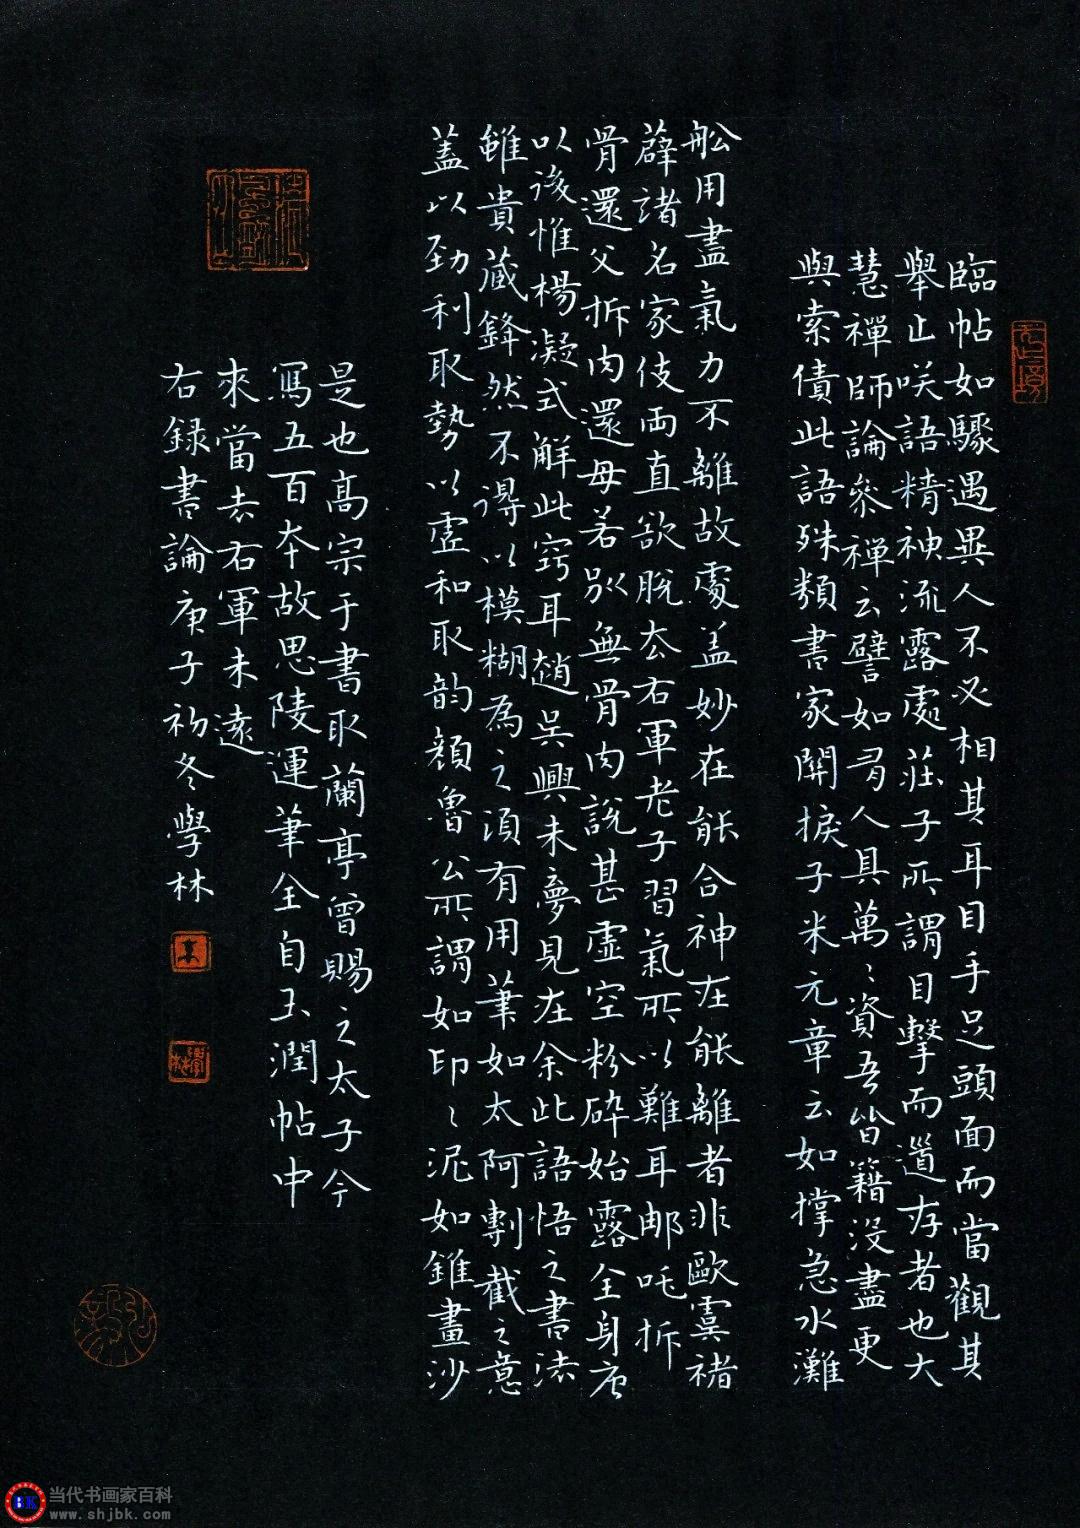 臨帖如驟遇異人不必相其耳目手足頭面而當觀其
舉止咲語精神流露處莊子所謂目擊而道存者也大
慧禪師論參禪云譬如有人具萬〻資吾皆籍没盡更
與索債此語殊類書家關捩子米元章云如撐急水灘
舩用盡氣力不離故處盖妙在能合神在能離者非歐虞褚
薛諸名家伎両直欲脱厺右軍老子習氣所以難耳郍吒拆
骨還父拆肉還母若別無骨肉説甚虛空粉碎始露全身唐
以後惟楊凝式解此竅耳趙吳興未夢見在余此語悟之書法
雖貴蔵鋒然不得以模糊為之須有用筆如太阿剸截之意
盖以勁利取勢以虛和取韵顔魯公所謂如印〻泥如錐畫沙
是也高宗于書取蘭亭曾賜之太子今
寫五百夲故思陵運筆全自玉潤帖中
來當去右軍未遠
右録書論庚子初冬學林
当代书画家百科
www.shjbk.com
BK